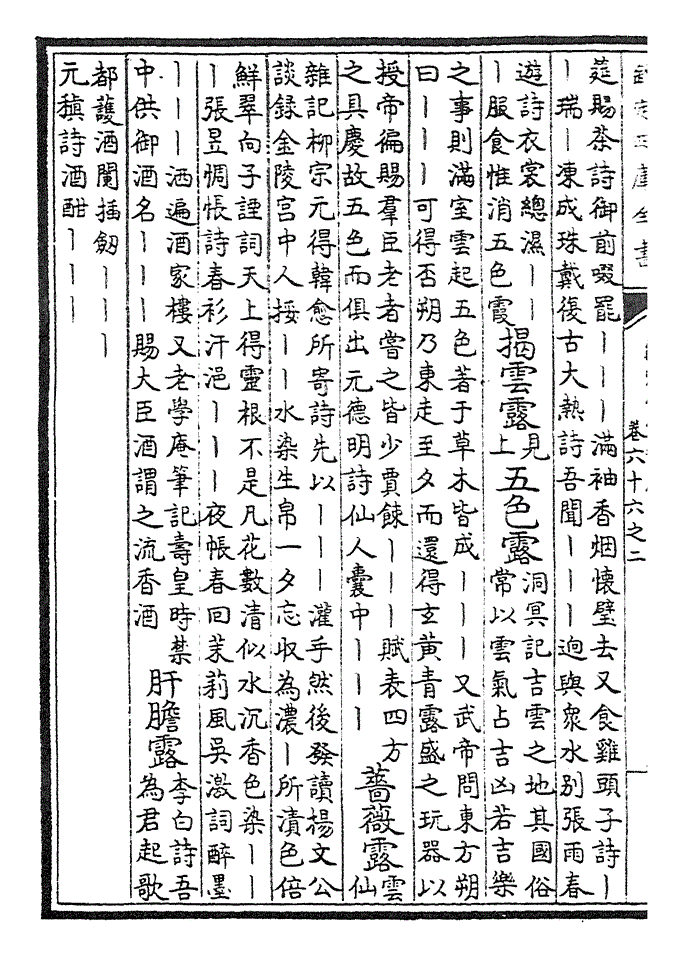 卷六十六之二
莚賜茶詩御前啜罷丨丨丨滿袖香烟懷璧去又食雞頭子詩丨
丨瑞丨凍成珠戴復古大熱詩吾聞丨丨丨逈與衆水別張雨春
遊詩衣裳總濕丨丨
丨服食惟消五色霞
揭雲露
見
上
五色露
洞冥記吉雲之地其國俗
常以雲氣占吉凶若吉樂
之事則滿室雲起五色著于草木皆成丨丨丨又武帝問東方朔
曰丨丨丨可得否朔乃東走至夕而還得玄黄青露盛之玩器以
授帝徧賜羣臣老者嘗之皆少賈餗丨丨丨賦表四方
之具慶故五色而俱出元德明詩仙人囊中丨丨丨
薔薇露
雲
仙
雜記柳宗元得韓愈所寄詩先以丨丨丨灌手然後發讀楊文公
談録金陵宫中人挼丨丨水染生帛一夕忘収為濃丨所漬色倍
鮮翠向子諲詞天上得靈根不是凡花數清似水沉香色染丨丨
丨張昱惆悵詩春衫汗浥丨丨丨夜帳春回茉莉風吳激詞醉墨
丨丨丨洒遍酒家樓又老學庵筆記壽皇時禁
中供御酒名丨丨丨賜大臣酒謂之流香酒
肝膽露
李白詩吾
為君起歌
都護酒闌插劒丨丨丨
元稹詩酒酣丨丨丨